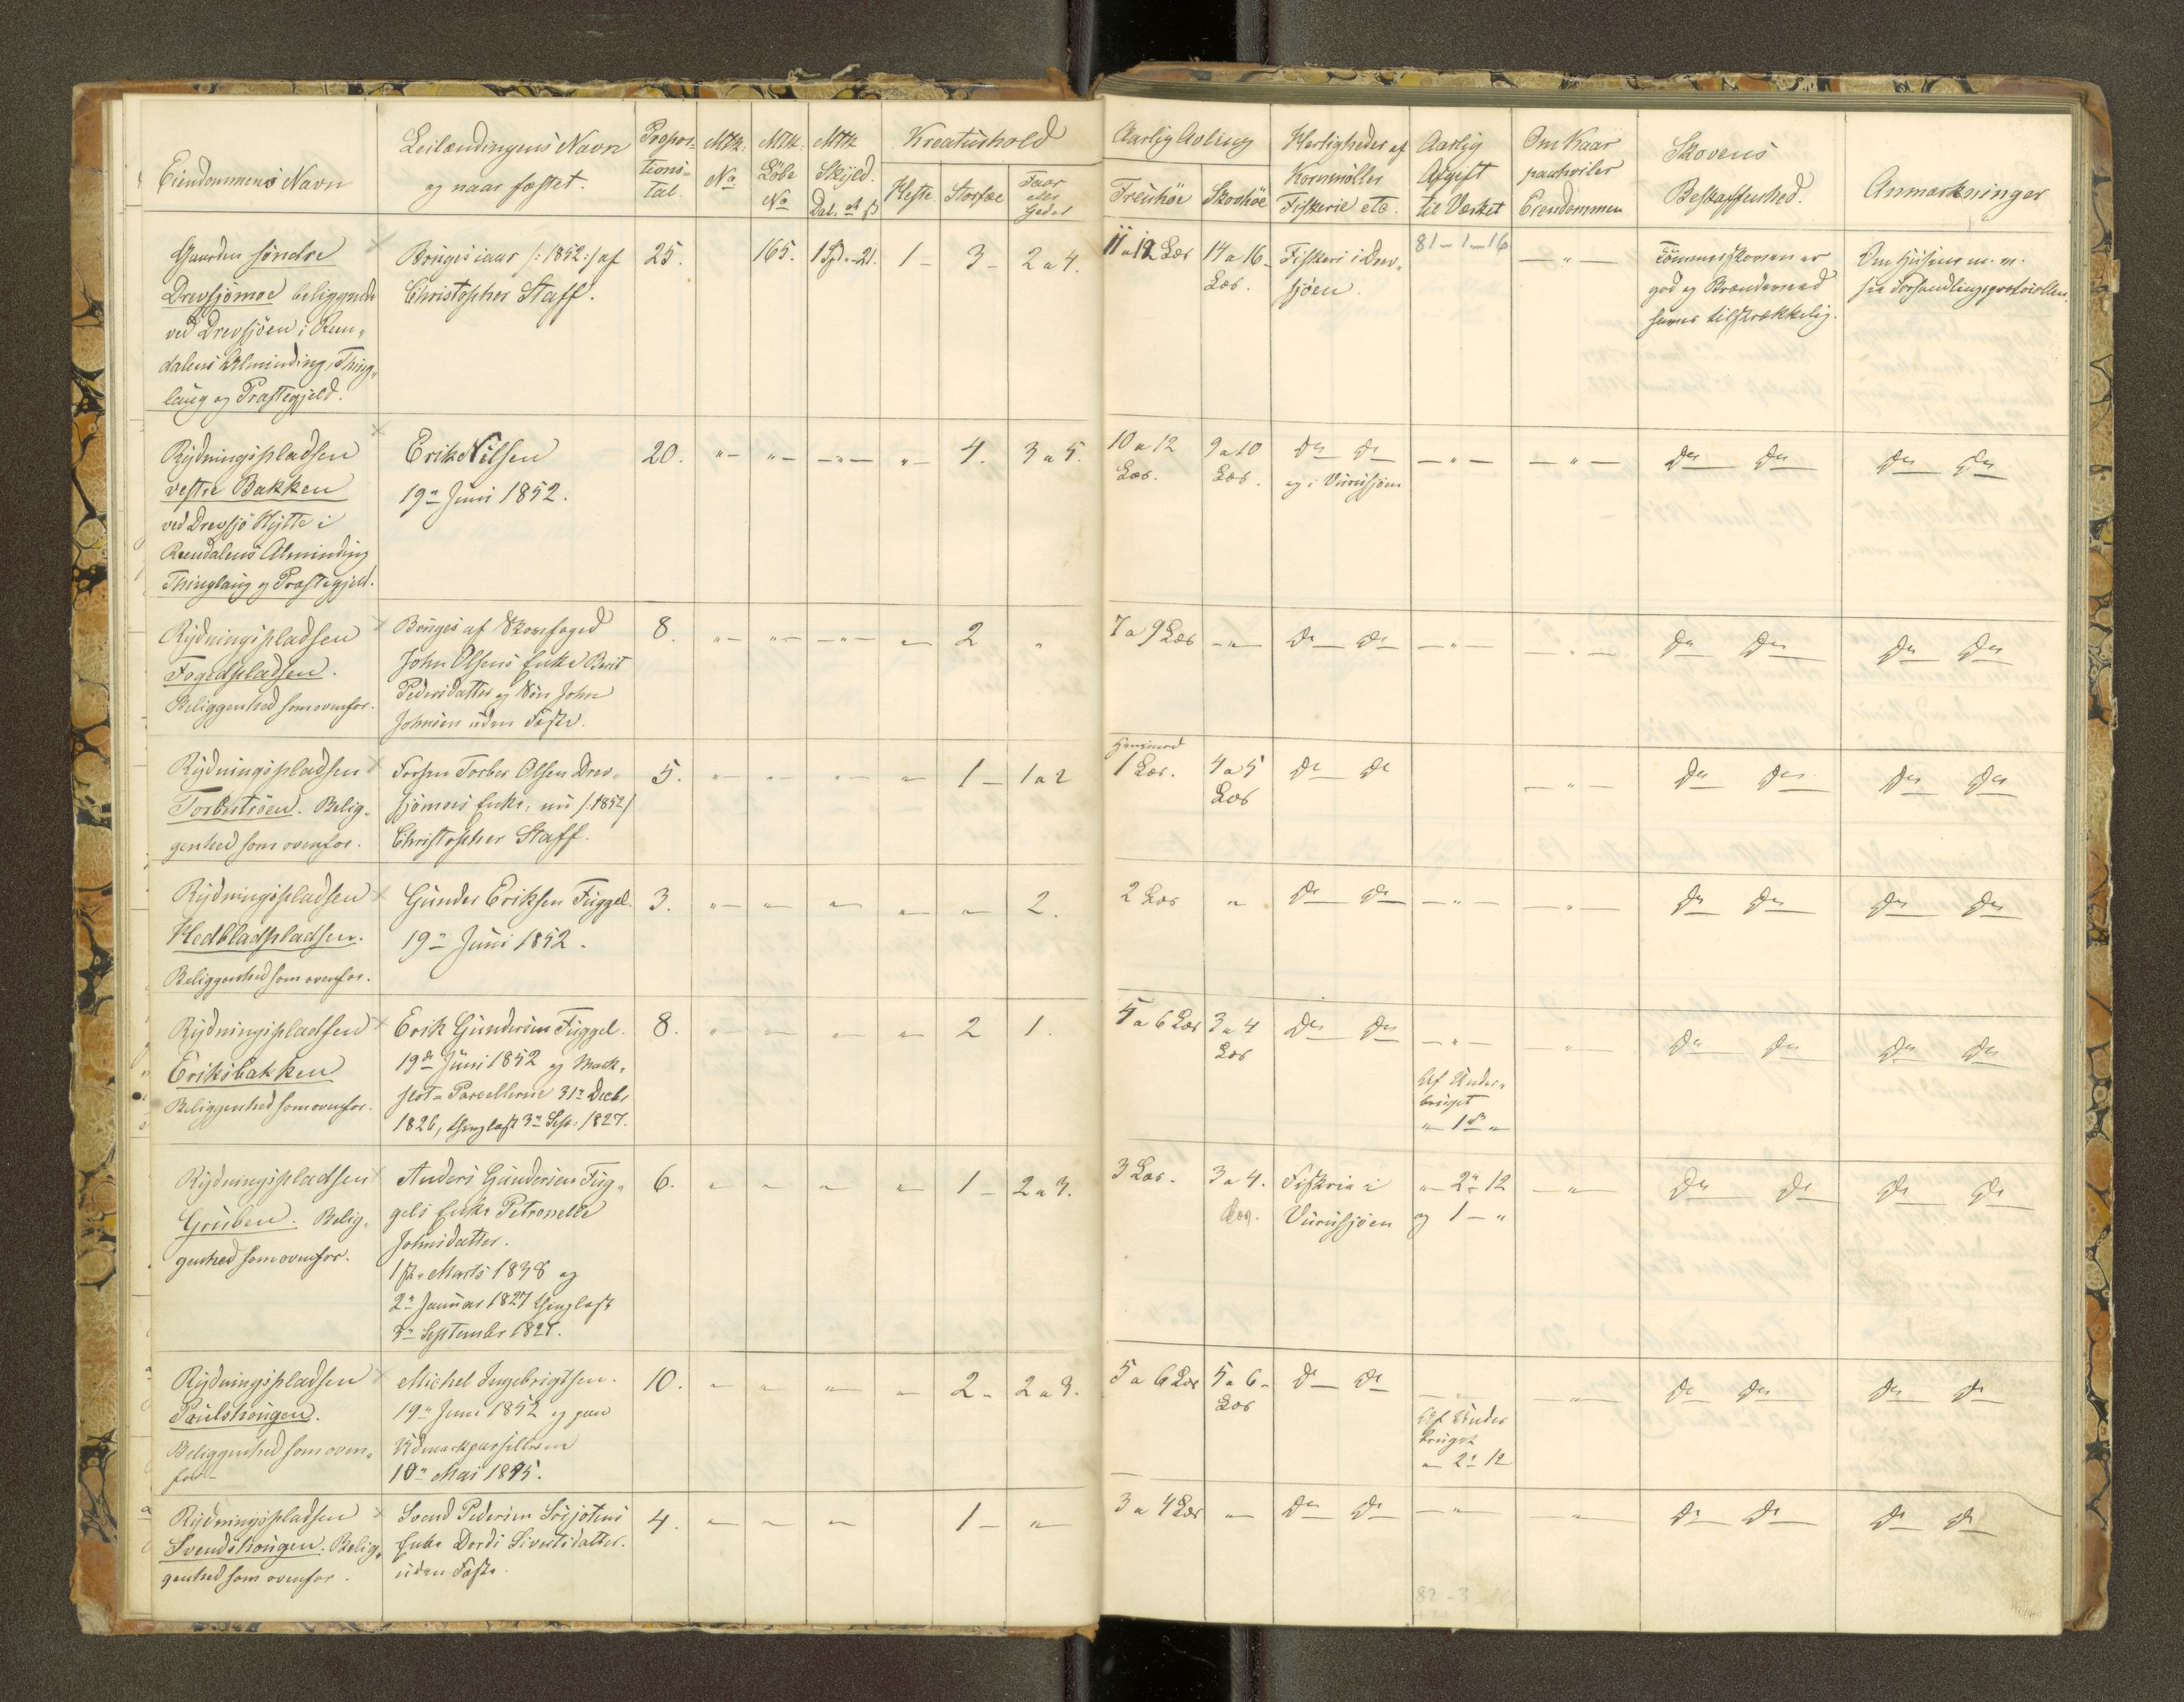 Eiendommens Navn
Leilændingens Navn
og naar fæstet.
Propor-
tions-
Tal
Mtk:
No
Mtk:
Löbe
No
Mtk
Skyld.
Dal. ort ß
Kreaturhold
Heste.
Storfæ
Faar
eller
Geder
Aarlig Avling
Freühöe
Skovhöe
Herligheder af
Kornmöller
Fiskerie etc.
Aarlig
Afgift
til Værket
Om Kaar
paahviler
Eiendommen
Skovens
Beskaffenhed.
Anmærkninger
Gaarden söndre
Drevsjömoe beliggende
ved Drevsjöen i Ren„
dalens Alminding, Thing„
laug og Præstegjeld.
Bruges i aar /:1852:/ af
Christopher Staff.
25.
165.
1 - 21.
1 -
3 -
2 a 4.
11 a 12 Læs
14 a 16 -
Læs.
Fiskeri i Drev„
sjöen.
81-1-16
- " -
Tömmerskoven er
god og Brændeveed
haves tilstrækkelig.
Om Husene m. m.
see Forhandlingsprotocollen.
Rydningspladsen
vestre Bakken
ved Drevsjö Hytte i
Rendalens Alminding
Thinglaug og Præstegjeld.
Erik Nilsen
19de Juni 1852.
20.
" -
" -
- " -
" -
4.
3 a 5.
10 a 12
Læs.
9 a 10
Læs.
Do Do
og i Vurusjöen
- " -
- " -
Do Do
Do Do
Rydningspladsen
Fogedpladsen.
Beliggenhed som ovenfor.
Bruges af Skovfoged
John Olsens Enke Berit
Pedersdatter og Sön John
Johnsen uden Fæste.
8.
" -
" -
- " -
"
2
"
7 a 9 Læs
- " -
Do Do
- " -
- " -
Do Do
Do Do
Rydningspladsen
Torbertröen. Belig„
genhed som ovenfor.
Torber Olsen Drev„
sjömoes Enke, nu /:1852/
Christopher Staff.
5.
" -
" -
" -
"
1 -
1 a 2
1 Læs.
4 a 5
Læs
Do Do
- " -
Do Do
Do Do
Rydningspladsen
Hedbladpladsen.
Beliggenhed som ovenfor.
Gunder Eriksen Fuggel.
19de Juni 1852.
3.
" -
"
"
"
"
2.
2 Læs
"
Do Do
- " -
- " -
Do Do
Do Do
Rydningspladsen
Eriksbakken
Beliggenhed som ovenfor.
Erik Gundersen Fuggel.
19de Juni 1852 og Mark„
slot-Parcellerne 31te Decbr
1826, thinglæst 3de Sep: 1827.
8.
"
"
"
"
2
1.
5 a 6 Læs
3 a 4
Læs
Do Do
- " -
Af Under„
bruget
" 1 "
"
Do Do
Do Do
Rydningspladsen
Gruben. Belig„
genhed som ovenfor.
Anders Gundersen Fug„
gels Enke Petronelle
Johnsdatter.
1ste Marts 1838 og
2den Januar 1827 thinglæst
3de September 1827.
6.
"
"
"
"
1 -
2 a 3.
3 Læs.
3 a 4.
Læs.
Fiskerie i
Vurusjöen
" 2 - 12
og 1 - "
- " -
Do Do
Do Do
Rydningspladsen
Paulshougen.
Beliggenhed som oven„
for -
Michel Ingebrigtsen.
19de Juni 1852 og paa
10de Mai 1845.
10.
"
"
"
"
2 -
2 a 3.
5 a 6 Læs
5 a 6 -
Læs
Do Do
- " -
Af Under
bruget
" 2 - 12
- " -
Do Do
Do Do
Rydningspladsen
Svendshougen. Belig„
genhed som ovenfor.
Svend Pedersen
Enke Dordi Sivertsdatter.
uden Fæste.
4.
"
"
"
1 -
"
3 a 4 Læs
"
Do Do
- " -
"
Do Do
Do Do